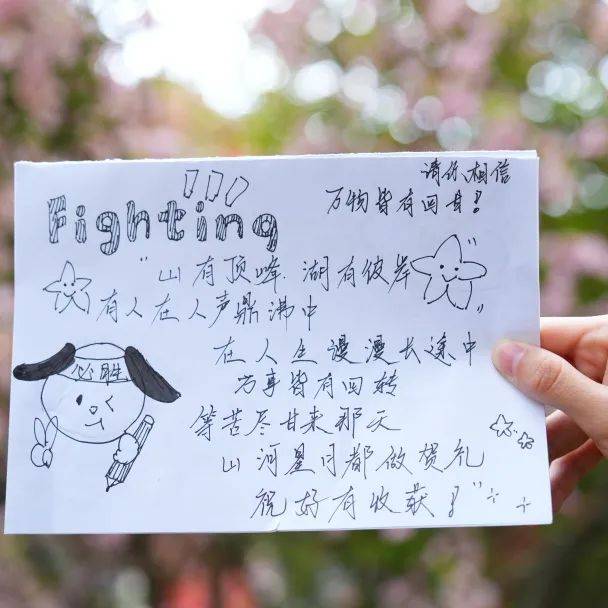 Fighting
请你相信
万物皆有回甘!
"山有顶峰.湖有彼岸
有人在人声鼎沸中
在人生漫漫长途中
万事皆有回转
等苦尽甘来那天
山河星月都做贺礼
祝好有收获!"
必胜